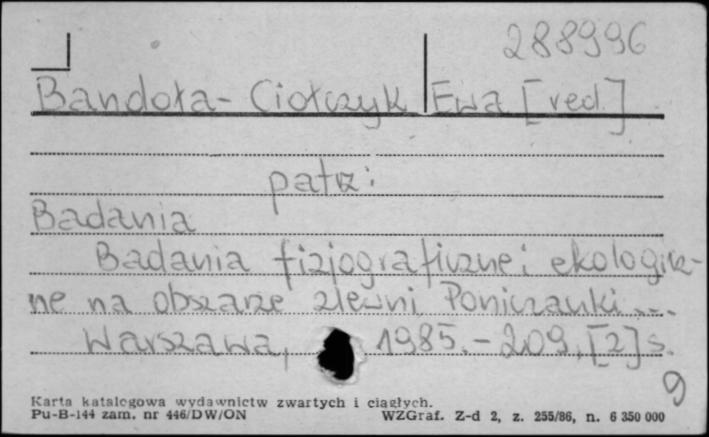 288996
Bandoła-Ciołczyk Ewa [red.]
patrz:
Badania
Badania fizjograficzne i ekologicz-
ne na obszarze zlewni Poniczanki...
Warszawa, 1985. - 209, [2] s.
9
Karta katalogowa wydawnictw zwartych i ciągłych.
Pu-B-144 zam. nr 446/DW/ON WZGraf. Z-d 2, z. 255/86, n. 6 350 000